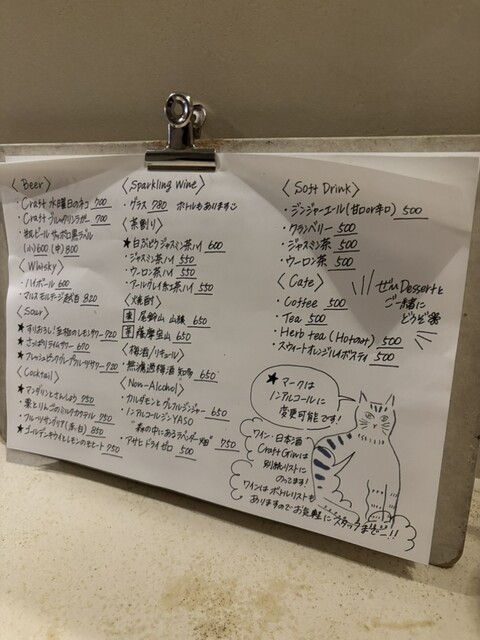 〈Beer〉
・Craft 水曜日のネコ 700
・Craft グルーヴリンラガー 700
・瓶ビール サッポロ黒ラベル
(小)600 (中) 800
〈Whisky〉
・ハイボール 600
・マルスモルテージ越百 820
〈Sour〉
★すりおろし!至極のレモンサワー 720
★さっぱりラムサワー 670
★フレッシュピンクグレープフルーツサワー 720
〈Cocktail〉
★マンダリンとすんしょう 750
・栗とりんごのミルクカクテル 950
・フルーツサングリア(赤、白) 850
★ゴールデンキウイとレモンのモヒート 950
〈Sparkling Wine〉
・グラス 780 ボトルもあります
〈茶割り〉
★白ぶどうジャスミン茶ハイ 600
・ジャスミン茶ハイ 550
・ウーロン茶ハイ 550
・アールグレイ紅茶ハイ 550
〈焼酎〉
麦 尾鈴山 山猿 650
芋 薩摩宝山 650
〈梅酒/リキュール〉
・無濾過梅酒 知多 650
〈Non-Alcohol〉
・カルダモンとヴァージンジンジャー 650
・ノンアルコールジン YASO
"森の中にあるラベンダー畑" 750
・アサヒ ドライゼロ 500
〈Soft Drink〉
・ジンジャーエール(甘口or辛口) 500
・クランベリー 500
・ジャスミン茶 500
・ウーロン茶 500
〈Cafe〉
・Coffee 500
・Tea 500
・Herb tea (Hotのみ) 500
・スウィートオレンジルイボスティ 500
ぜひ Dessertと
ご一緒に
どうぞ
★マークは
ノンアルコールに
変更可能です!
ワイン・日本酒
Craft Ginは
別紙リストに
のってます!
ワインはボトルリストも
ありますのでお気軽にスタッフまで〜!!